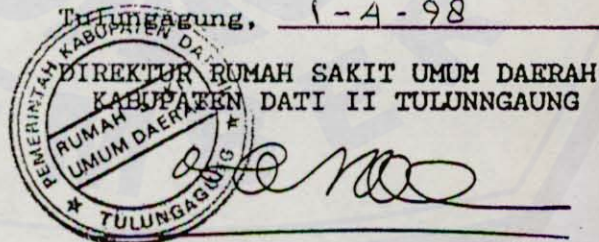 Tulungagung, 1-4-98
DIREKTUR RUMAH SAKIT UMUM DAERAH
KABUPATEN DATI II TULUNNGAUNG
PEMERINTAH KABUPATEN DATI II
RUMAH SAKIT
UMUM DAERAH
TULUNGAGUNG